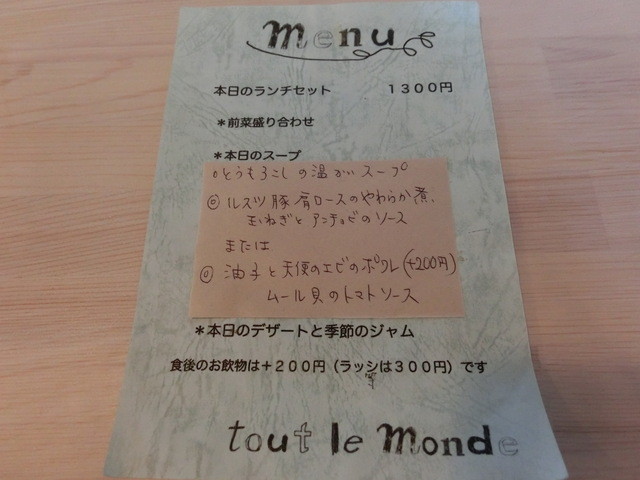 menu
本日のランチセット 1300円
*前菜盛り合わせ
*本日のスープ
・とうもろこしの温かいスープ
◎ ルスツ豚肩ロースのやわらか煮、
玉ねぎとアンチョビのソース
または
◎ 油子と天使のエビのポワレ(+200円)
ムール貝のトマトソース
*本日のデザートと季節のジャム
食後のお飲物は+200円(ラッシ等は300円)です
tout le monde